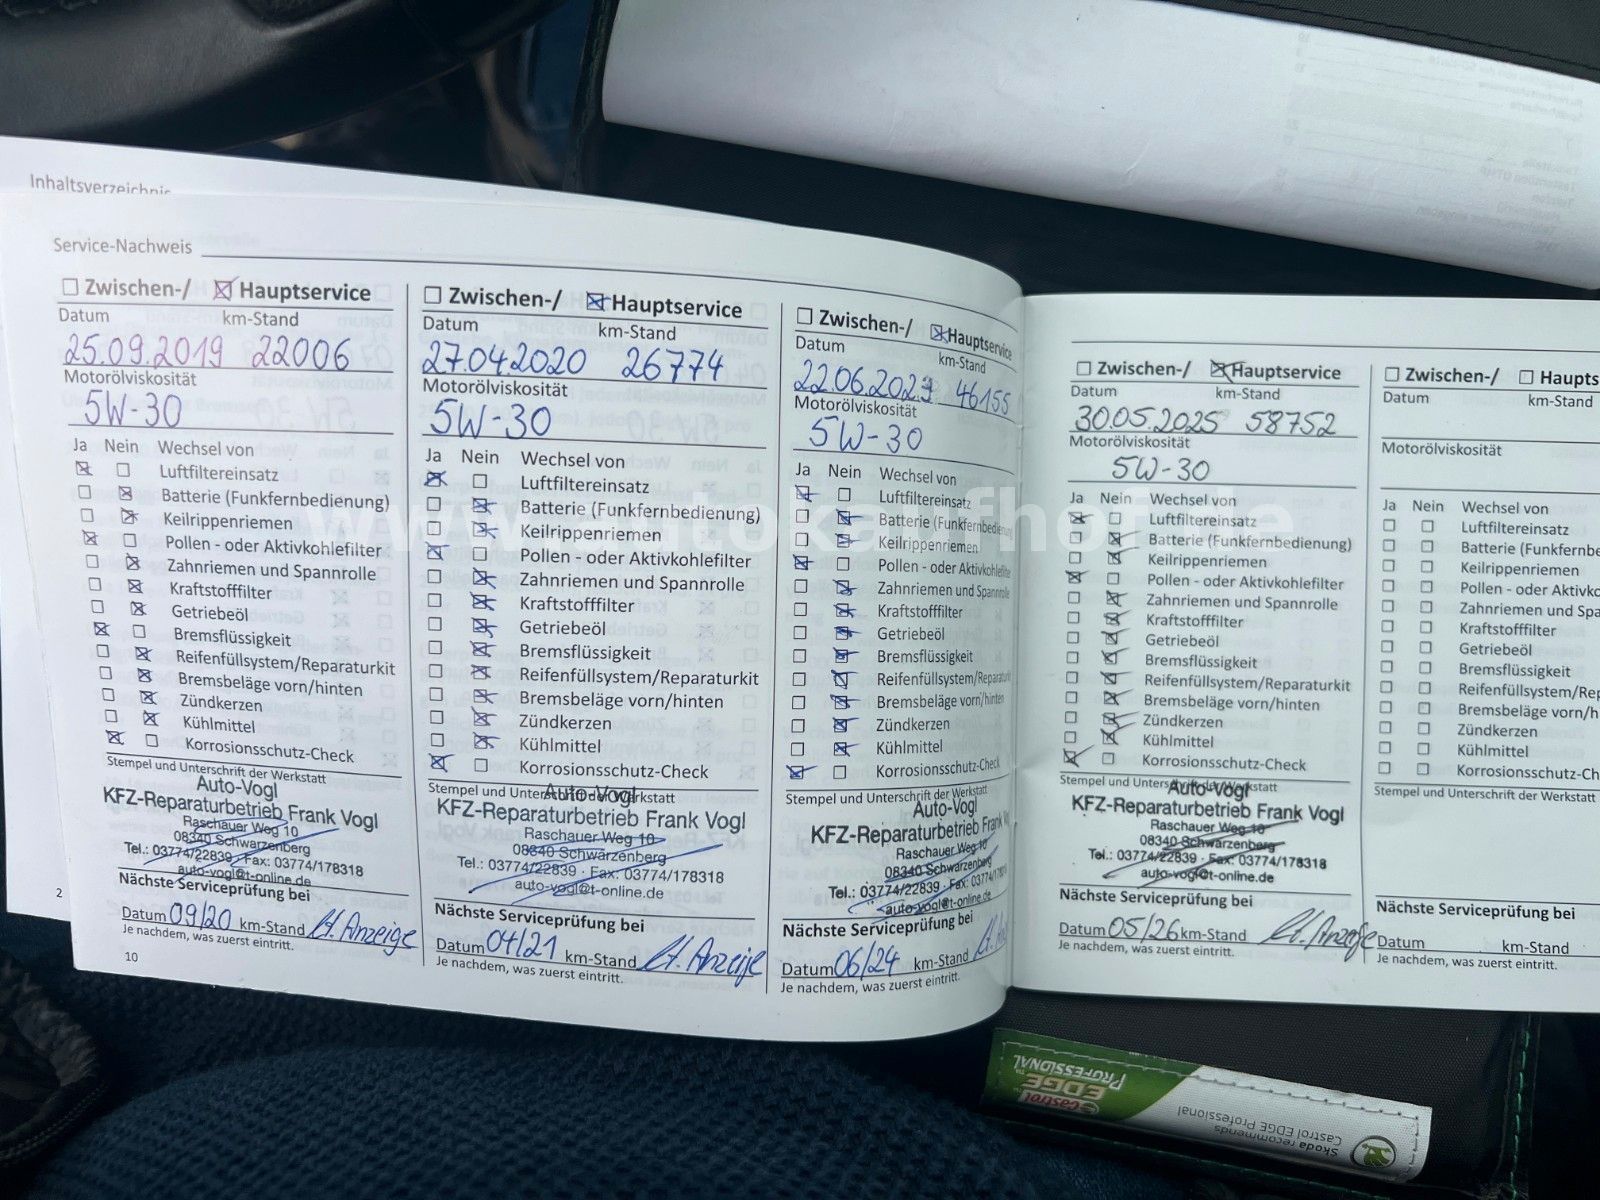 Inhaltsverzeichnis
Service-Nachweis
☐ Zwischen-/ ☒ Hauptservice
Datum km-Stand
25.09.2019 22006
Motorölviskosität
5W-30
Ja Nein Wechsel von
☒ ☐ Luftfiltereinsatz
☐ ☒ Batterie (Funkfernbedienung)
☐ ☒ Keilrippenriemen
☒ ☐ Pollen - oder Aktivkohlefilter
☐ ☒ Zahnriemen und Spannrolle
☐ ☒ Kraftstofffilter
☐ ☒ Getriebeöl
☒ ☐ Bremsflüssigkeit
☐ ☒ Reifenfüllsystem/Reparaturkit
☐ ☒ Bremsbeläge vorn/hinten
☐ ☒ Zündkerzen
☐ ☒ Kühlmittel
☒ ☐ Korrosionsschutz-Check
Stempel und Unterschrift der Werkstatt
Auto-Vogl
KFZ-Reparaturbetrieb Frank Vogl
Raschauer Weg 10
08340 Schwarzenberg
Tel.: 03774/22839 · Fax: 03774/178318
auto-vogl@t-online.de
Nächste Serviceprüfung bei
Datum 09/20 km-Stand lt. Anzeige
Je nachdem, was zuerst eintritt.
2
10
☐ Zwischen-/ ☒ Hauptservice
Datum km-Stand
27.04.2020 26774
Motorölviskosität
5W-30
Ja Nein Wechsel von
☒ ☐ Luftfiltereinsatz
☐ ☒ Batterie (Funkfernbedienung)
☐ ☒ Keilrippenriemen
☒ ☐ Pollen - oder Aktivkohlefilter
☐ ☒ Zahnriemen und Spannrolle
☐ ☒ Kraftstofffilter
☐ ☒ Getriebeöl
☐ ☒ Bremsflüssigkeit
☐ ☒ Reifenfüllsystem/Reparaturkit
☐ ☒ Bremsbeläge vorn/hinten
☐ ☒ Zündkerzen
☐ ☒ Kühlmittel
☒ ☐ Korrosionsschutz-Check
Stempel und Unterschrift der Werkstatt
Auto-Vogl
KFZ-Reparaturbetrieb Frank Vogl
Raschauer Weg 10
08340 Schwarzenberg
Tel.: 03774/22839 · Fax: 03774/178318
auto-vogl@t-online.de
Nächste Serviceprüfung bei
Datum 04/21 km-Stand lt. Anzeige
Je nachdem, was zuerst eintritt.
☐ Zwischen-/ ☒ Hauptservice
Datum km-Stand
22.06.2023 46155
Motorölviskosität
5W-30
Ja Nein Wechsel von
☒ ☐ Luftfiltereinsatz
☐ ☒ Batterie (Funkfernbedienung
☐ ☒ Keilrippenriemen
☒ ☐ Pollen - oder Aktivkohlefilter
☐ ☒ Zahnriemen und Spannrolle
☐ ☒ Kraftstofffilter
☐ ☒ Getriebeöl
☐ ☒ Bremsflüssigkeit
☐ ☒ Reifenfüllsystem/Reparaturkit
☐ ☒ Bremsbeläge vorn/hinten
☐ ☒ Zündkerzen
☐ ☒ Kühlmittel
☒ ☐ Korrosionsschutz-Check
Stempel und Unterschrift der Werkstatt
Auto-Vogl
KFZ-Reparaturbetrieb Frank
Raschauer Weg 10
08340 Schwarzenberg
Tel.: 03774/22839 · Fax: 03774/
auto-vogl@t-online.de
Nächste Serviceprüfung bei
Datum 06/24 km-Stand lt.
Je nachdem, was zuerst eintritt.
☐ Zwischen-/ ☒ Hauptservice
Datum km-Stand
30.05.2025 58752
Motorölviskosität
5W-30
Ja Nein Wechsel von
☒ ☐ Luftfiltereinsatz
☐ ☒ Batterie (Funkfernbedienung)
☐ ☒ Keilrippenriemen
☒ ☐ Pollen - oder Aktivkohlefilter
☐ ☒ Zahnriemen und Spannrolle
☐ ☒ Kraftstofffilter
☐ ☒ Getriebeöl
☐ ☒ Bremsflüssigkeit
☐ ☒ Reifenfüllsystem/Reparaturkit
☐ ☒ Bremsbeläge vorn/hinten
☐ ☒ Zündkerzen
☐ ☒ Kühlmittel
☒ ☐ Korrosionsschutz-Check
Stempel und Unterschrift der Werkstatt
Auto-Vogl
KFZ-Reparaturbetrieb Frank Vogl
Raschauer Weg 10
08340 Schwarzenberg
Tel.: 03774/22839 · Fax: 03774/178318
auto-vogl@t-online.de
Nächste Serviceprüfung bei
Datum 05/26 km-Stand lt. Anzeige
Je nachdem, was zuerst eintritt.
☐ Zwischen-/ ☐ Haupts
Datum km-Stand
Motorölviskosität
Ja Nein Wechsel von
☐ ☐ Luftfiltereinsatz
☐ ☐ Batterie (Funkfernbe
☐ ☐ Keilrippenriemen
☐ ☐ Pollen - oder Aktivko
☐ ☐ Zahnriemen und Spa
☐ ☐ Kraftstofffilter
☐ ☐ Getriebeöl
☐ ☐ Bremsflüssigkeit
☐ ☐ Reifenfüllsystem/Rep
☐ ☐ Bremsbeläge vorn/h
☐ ☐ Zündkerzen
☐ ☐ Kühlmittel
☐ ☐ Korrosionsschutz-Ch
Stempel und Unterschrift der Werkstatt
Nächste Serviceprüfung bei
Datum km-Stand
Je nachdem, was zuerst eintritt.
www.autokaufhof.de
Skoda recommends
Castrol EDGE Professional
Castrol
EDGE
PROFESSIONAL